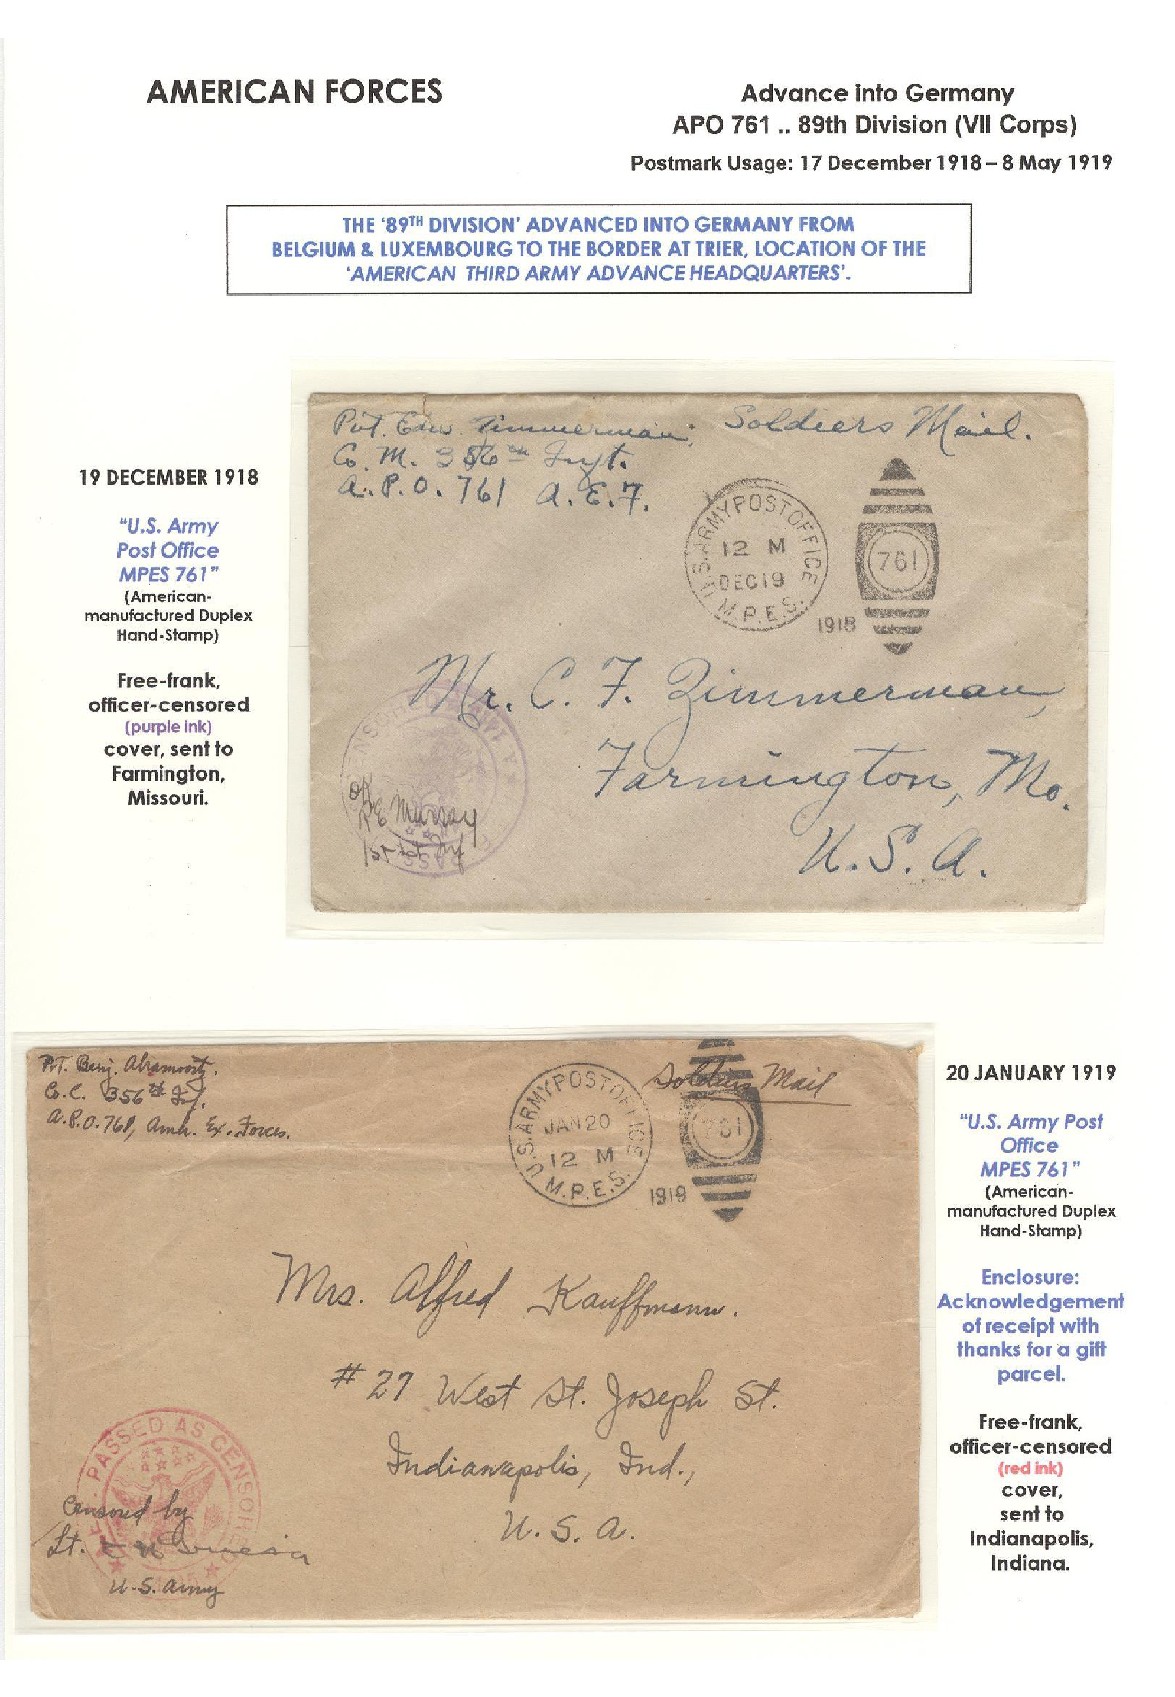 AMERICAN FORCES
Advance into Germany
APO 761 .. 89th Division (VII Corps)
Postmark Usage: 17 December 1918 – 8 May 1919
THE ‘89TH DIVISION’ ADVANCED INTO GERMANY FROM
BELGIUM & LUXEMBOURG TO THE BORDER AT TRIER, LOCATION OF THE
‘AMERICAN THIRD ARMY ADVANCE HEADQUARTERS’.
19 DECEMBER 1918
“U.S. Army
Post Office
MPES 761”
(American-
manufactured Duplex
Hand-Stamp)
Free-frank,
officer-censored
(purple ink)
cover, sent to
Farmington,
Missouri.
Pvt. Edw. Zimmerman,
Co. M. 356th Inft.
A.P.O. 761 A.E.F.
Soldiers Mail.
U.S. ARMY POST OFFICE
12 M
DEC 19
M.P.E.S.
1918
761
Mr. C. F. Zimmerman,
Farmington, Mo.
U.S.A.
OK
20 JANUARY 1919
“U.S. Army Post
Office
MPES 761”
(American-
manufactured Duplex
Hand-Stamp)
Enclosure:
Acknowledgement
of receipt with
thanks for a gift
parcel.
Free-frank,
officer-censored
(red ink)
cover,
sent to
Indianapolis,
Indiana.
Pvt. Benj.
Co. C. 356th Inf.
A.P.O. 761, Amer. Ex. Forces.
U.S. ARMY POST OFFICE
JAN 20
12 M
M.P.E.S.
1919
761
Soldiers Mail
Mrs. Alfred Kauffmann.
# 27 West St. Joseph St.
Indianapolis, Ind.,
U.S.A.
PASSED AS CENSORED
Censored by
Lt.
U.S. Army